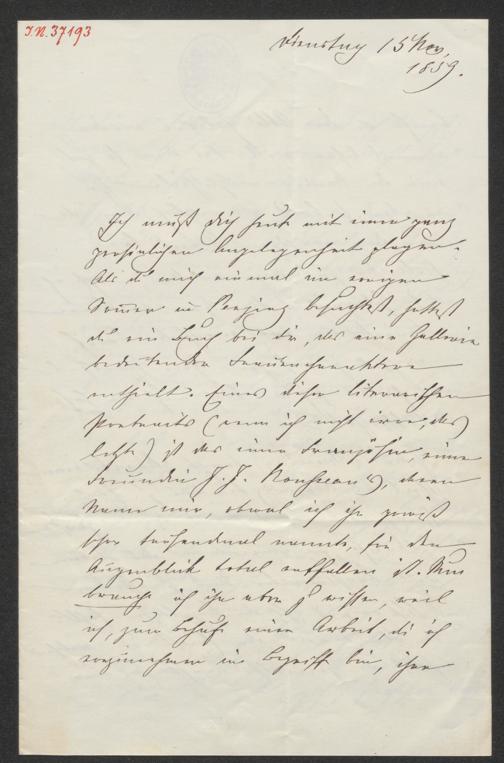 I.N. 37193
Dienstag 15 Nov.
1859.
Ich muß dich heute mit einer ganz
persönlichen Angelegenheit plagen.
Als du mich einmal im vorigen
Sommer in Penzing besuchtest, hattest
du ein Buch bei dir, das eine Gallerie
bedeutender Frauencharaktere
enthielt. Eines dieser literarischen
Portraits (wenn ich nicht irre, das
letzte) ist das einer Französin, einer
Freundin J. J. Rousseau's, deren
Name mir, obwol ich ihn gewiß
schon tausendmal nannte, für den
Augenblick total entfallen ist. Nun
brauche ich ihn aber zu wissen, weil
ich, zum Behufe einer Arbeit, die ich
vorzunehmen im Begriff bin, ihre